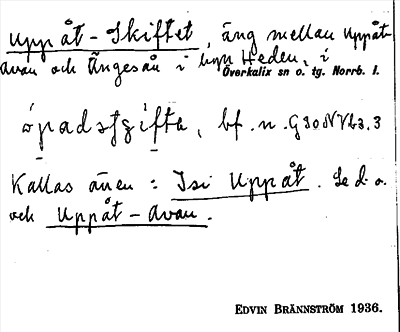 Uppåt-Skiftet, äng mellan Uppåt-
avan och Ängesån i byn Heden, i
Överkalix sn o. tg. Norrb. l.
öpadstgifta, bf. n.
Kallas även: Isi Uppåt. Se d. o.
och Uppåt-avan.
EDVIN BRÄNNSTRÖM 1936.